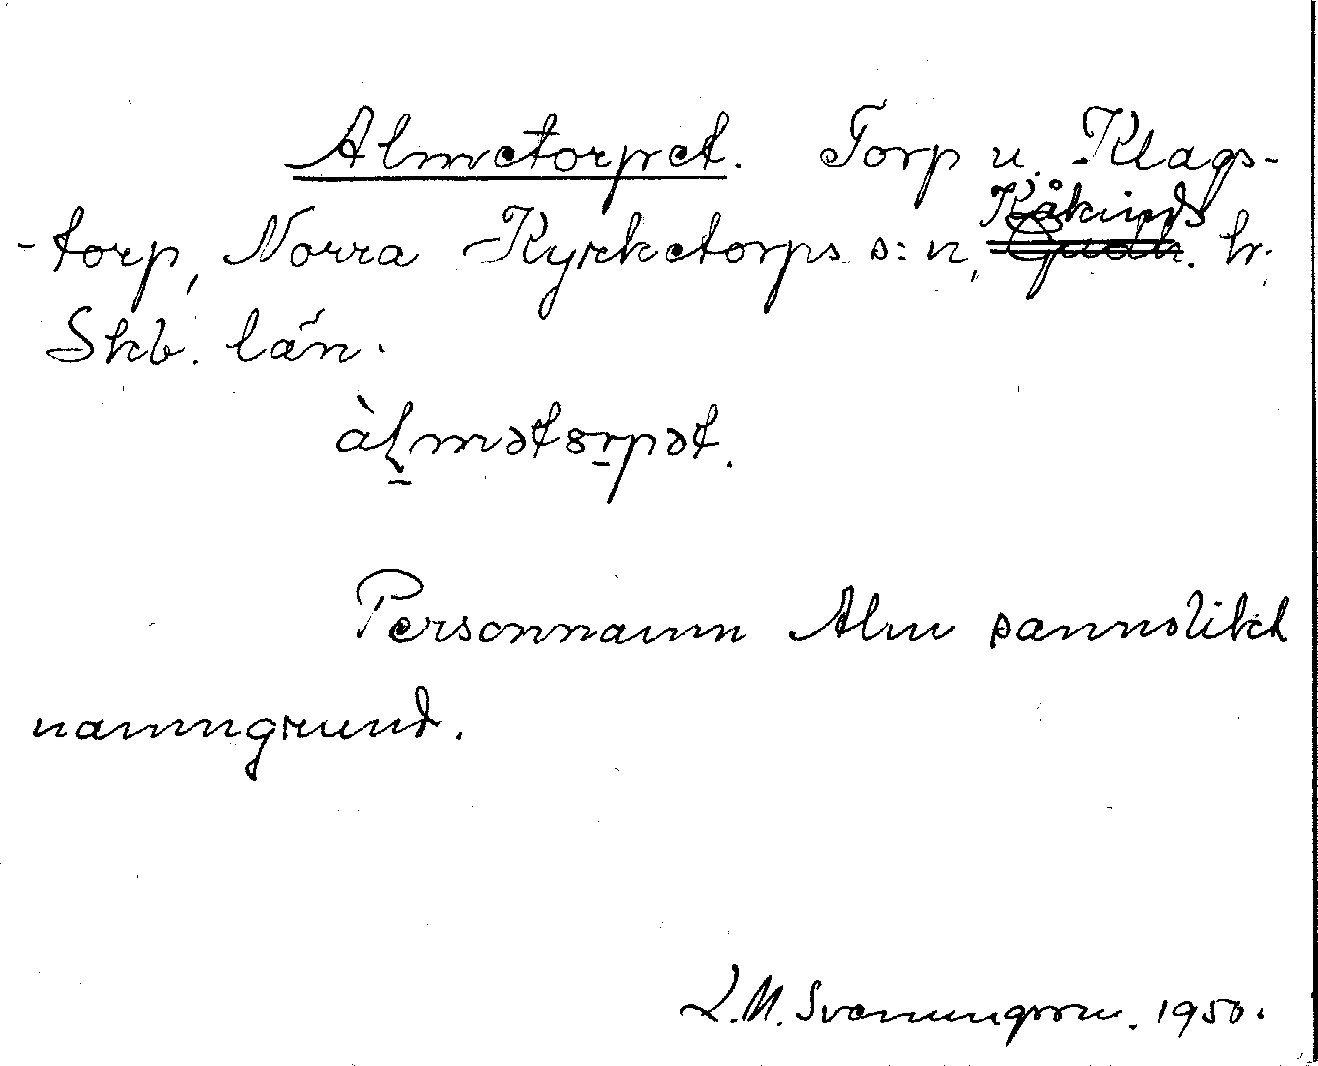 Almetorpet. Torp u. Klags-
-torp, Norra Kyrketorps s:n, Kåkinds hr.
Skb. län.
àḷmətɵrpət.
Personnamn Alm sannolikt
namngrund.
L.M. Svenungsson. 1950.